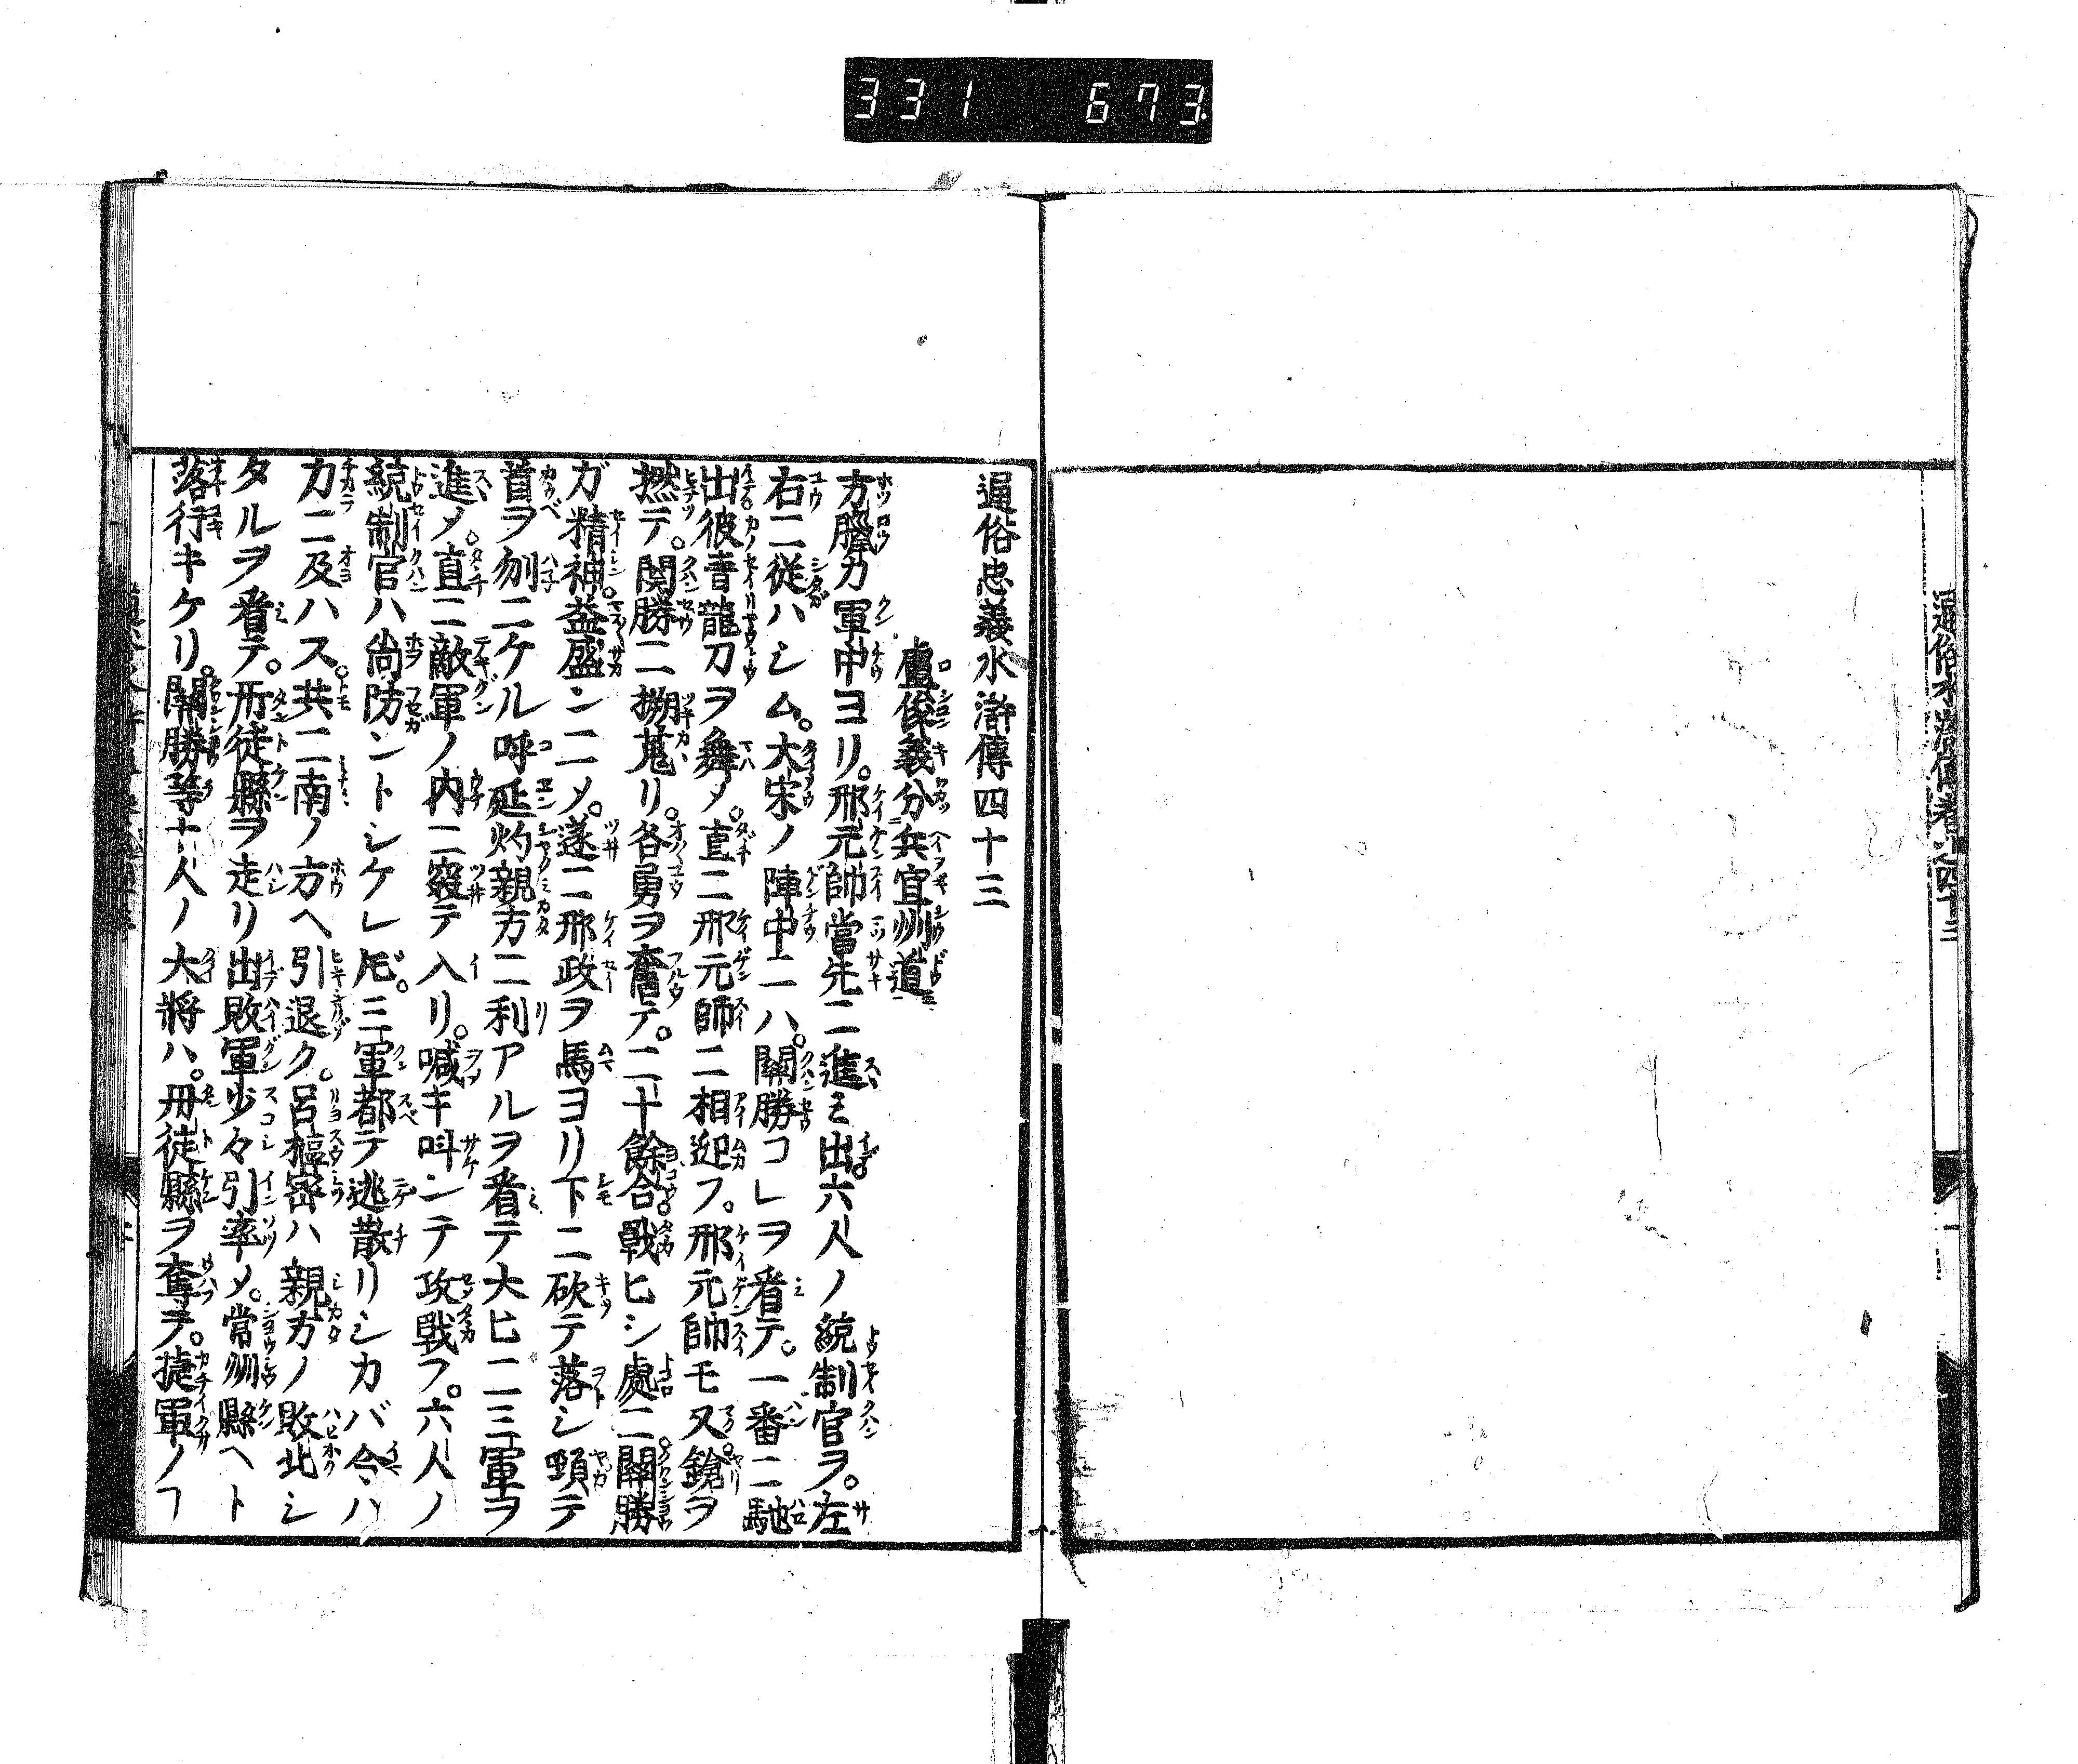 331 673
通俗忠義水滸傳四十三
盧俊義分兵宣州道
方臘カ軍中ヨリ。邢元帥當先ニ進ミ出。六人ノ統制官ヲ。左
右ニ従ハシム。大宋ノ陣中ニハ。關勝コレヲ看テ。一番ニ馳
出彼青龍刀ヲ舞メ。直ニ邢元帥ニ相迎フ。邢元帥モ又鎗ヲ
撚テ。関勝ニ搠蒐リ。各勇ヲ奮テ。二十餘合。戰ヒシ處ニ關勝
ガ精神益盛ンニメ。遂ニ邢政ヲ馬ヨリ下ニ砍テ落シ頸テ
首ヲ刎ニケル呼延灼親方ニ利アルヲ看テ大ヒニ三軍ヲ
進メ。直ニ敵軍ノ内ニ竅テ入リ。喊キ叫ンテ攻戰フ。六人ノ
統制官ハ尚防ントシケレ𪜈。三軍都テ逃散リシカバ今ハ
力ニ及ハス。共ニ南ノ方ヘ引退ク。呂樞密ハ親方ノ敗北シ
タルヲ看テ。丹徒縣ヲ走リ出敗軍少々引率メ。常州縣ヘト
落行キケリ。關勝等十人ノ大將ハ。丹徒縣ヲ奪ヲ。捷軍ノフ